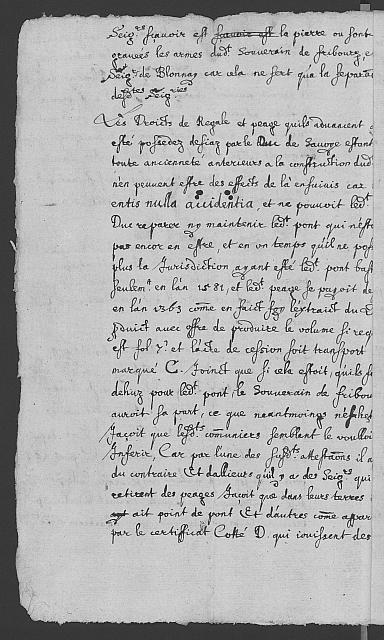 Seig.rs scavoir est scavoir est la pierre ou sont
gravées les armes dud.t Souverain de fribourg e
Seig.r de Blonnay car cela ne sert que la separa
desd.tes Seig.ries
Les Droicts de Regale et peage quils advancent
esté possedez desiaz par le Duc de Savoye estant
toute ancienneté anterieurs a la construction dud
n'en peuvent estre des effects de la ensuivis car
entis nulla accidentia, et ne pouvoit led.t
Duc reparer ny maintenir led.t pont qui n'este
pas encor en estre, et en un temps qu'il ne pos
plus la Jurisdiction ayant esté led.t pont bas
seulem.t en l'an 1581, et led.t peage se payoit de
en l'an 1363 come en faict foy l'extraict du
produit avec offre de produire le volume si req
est fol et l'acte de cession soit transport
marqué C. Joinct que si cela estoit, qu'ils
dehuz pour led.t pont, le Souverain de fribou
auroit sa part, ce que neantmoings n'eschet
Jaçoit que lesd.ts comuniers semblant le voulloi
Inferir, Car par l'une des susd.tes attestations il a
du contraire Et d'allieurs quil y a des Seig.rs qui
retirent des peages Jaçoit que dans leurs terres
ait point de pont Et d'autres come appar
par le certifficat Cotté D. qui iouissent des